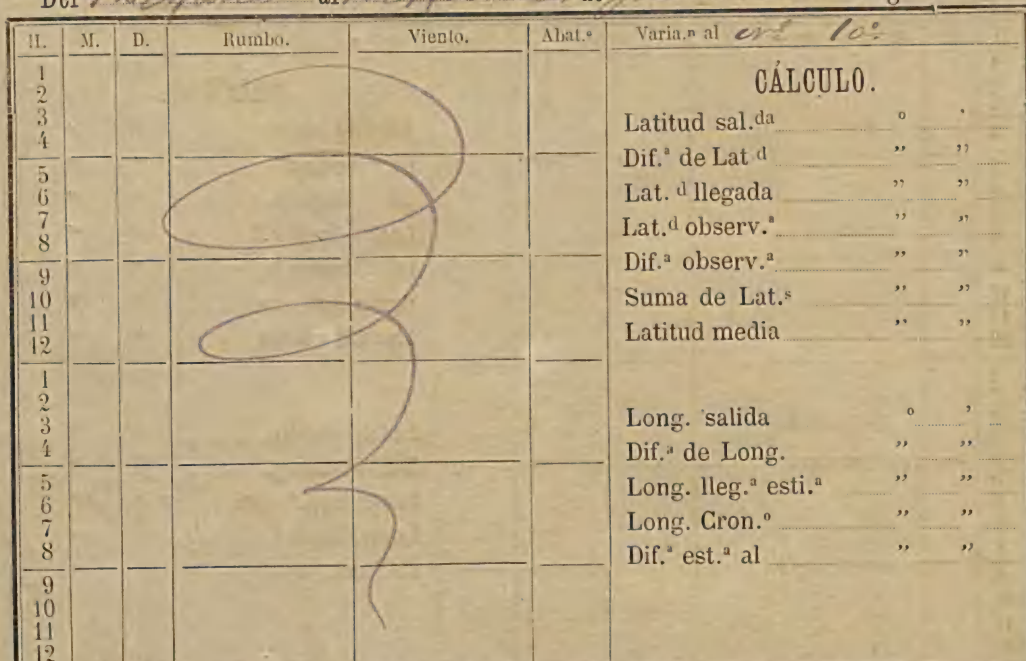 Del al
H. M. D. Rumbo. Viento. Abat.º Varia.ⁿ al 10º
CÁLCULO.
1
2
3
4
5
6
7
8
9
10
11
12
1
2
3
4
5
6
7
8
9
10
11
12
Latitud sal.da º '
Dif.ª de Lat d " "
Lat. d llegada " "
Lat.d observ.ª " "
Dif.ª observ.ª " "
Suma de Lat.s " "
Latitud media " "
Long. salida º '
Dif.ª de Long. " "
Long. lleg.ª esti.ª " "
Long. Cron.º " "
Dif.ª est.ª al " "